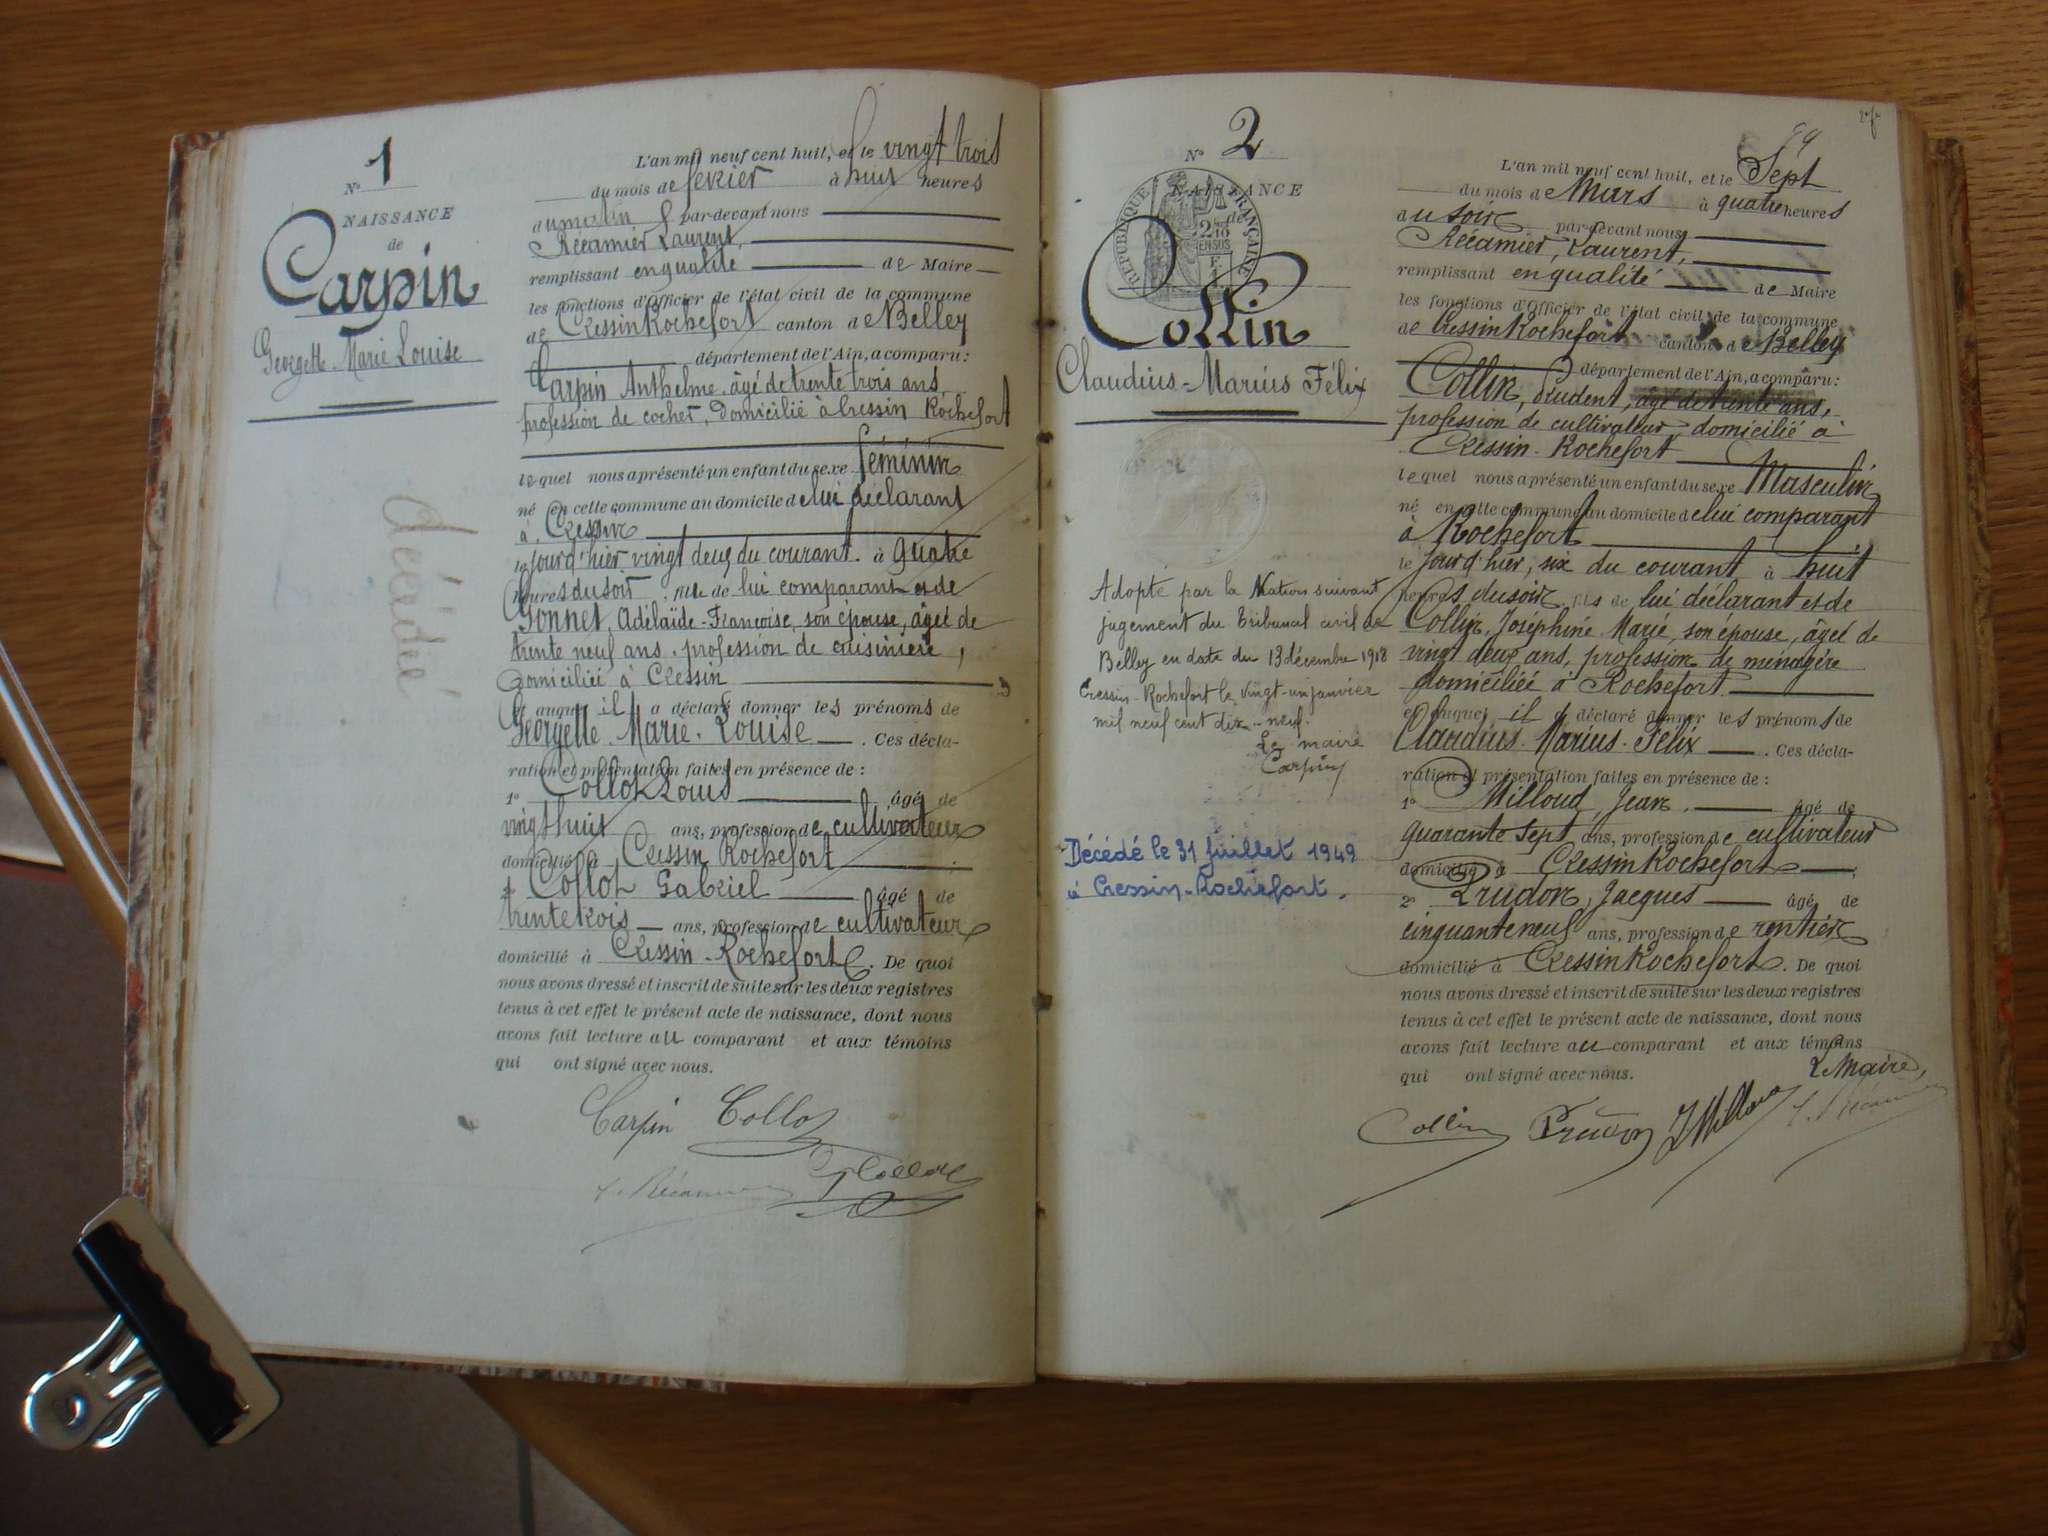 N° 1
NAISSANCE
de
Carpin
Georgette Marie Louise
décédé
L'an mil neuf cent huit, et le vingt trois
du mois de février à huit heures
du matin par-devant nous
Récamier Laurent,
remplissant en qualité de Maire
les fonctions d'Officier de l'état civil de la commune
de Cressin Rochefort canton de Belley
département de l'Ain, a comparu:
Carpin Anthelme, âgé de trente trois ans,
profession de cocher, domicilié à Cressin Rochefort
lequel nous a présenté un enfant du sexe féminin
né en cette commune au domicile de lui déclarant
à Cressin
le jour d'hier vingt deux du courant à quatre
heures du soir, fille de lui comparant et de
Gonnet, Adélaïde-Françoise, son épouse, âgée de
trente neuf ans, profession de cuisinière,
domiciliée à Cressin
et auquel il a déclaré donner les prénoms de
Georgette Marie Louise. Ces décla-
ration et présentation faites en présence de:
1° Collot Louis âgé de
vingt huit ans, profession de cultivateur
domicilié à Cressin Rochefort
2° Collot Gabriel âgé de
trente trois ans, profession de cultivateur
domicilié à Cressin-Rochefort. De quoi
nous avons dressé et inscrit de suite sur les deux registres
tenus à cet effet le présent acte de naissance, dont nous
avons fait lecture au comparant et aux témoins
qui ont signé avec nous.
Carpin Collot
L. Récamier G Collot
N° 2
NAISSANCE
de
RÉPUBLIQUE FRANÇAISE
2/10
EN SUS
Collin
Claudius-Marius Félix
Adopté par la Nation suivant
jugement du Tribunal civil de
Belley en date du 13 décembre 1918
Cressin-Rochefort le vingt-un janvier
mil neuf cent dix-neuf.
Le maire
Carpin
Décédé le 31 juillet 1949
à Cressin-Rochefort.
L'an mil neuf cent huit, et le Sept
du mois de Mars à quatre heures
du soir par-devant nous
Récamier, Laurent,
remplissant en qualité de Maire
les fonctions d'Officier de l'état civil de la commune
de Cressin Rochefort canton de Belley
département de l'Ain, a comparu:
Collin, Prudent, âgé de trente ans,
profession de cultivateur, domicilié à
Cressin-Rochefort
lequel nous a présenté un enfant du sexe Masculin
né en cette commune au domicile de lui comparant
à Rochefort
le jour d'hier, six du courant à huit
heures du soir, fils de lui déclarant et de
Collin, Joséphine Marie, son épouse, âgée de
vingt deux ans, profession de ménagère
domiciliée à Rochefort.
et auquel il a déclaré donner les prénoms de
Claudius-Marius-Félix. Ces décla-
ration et présentation faites en présence de:
1° Milloud, Jean, âgé de
quarante sept ans, profession de cultivateur
domicilié à Cressin Rochefort,
2° Prudon, Jacques âgé de
cinquante neuf ans, profession de rentier
domicilié à Cressin Rochefort. De quoi
nous avons dressé et inscrit de suite sur les deux registres
tenus à cet effet le présent acte de naissance, dont nous
avons fait lecture au comparant et aux témoins
qui ont signé avec nous.
Le Maire,
Collin Prudon J Milloud L. Récamier